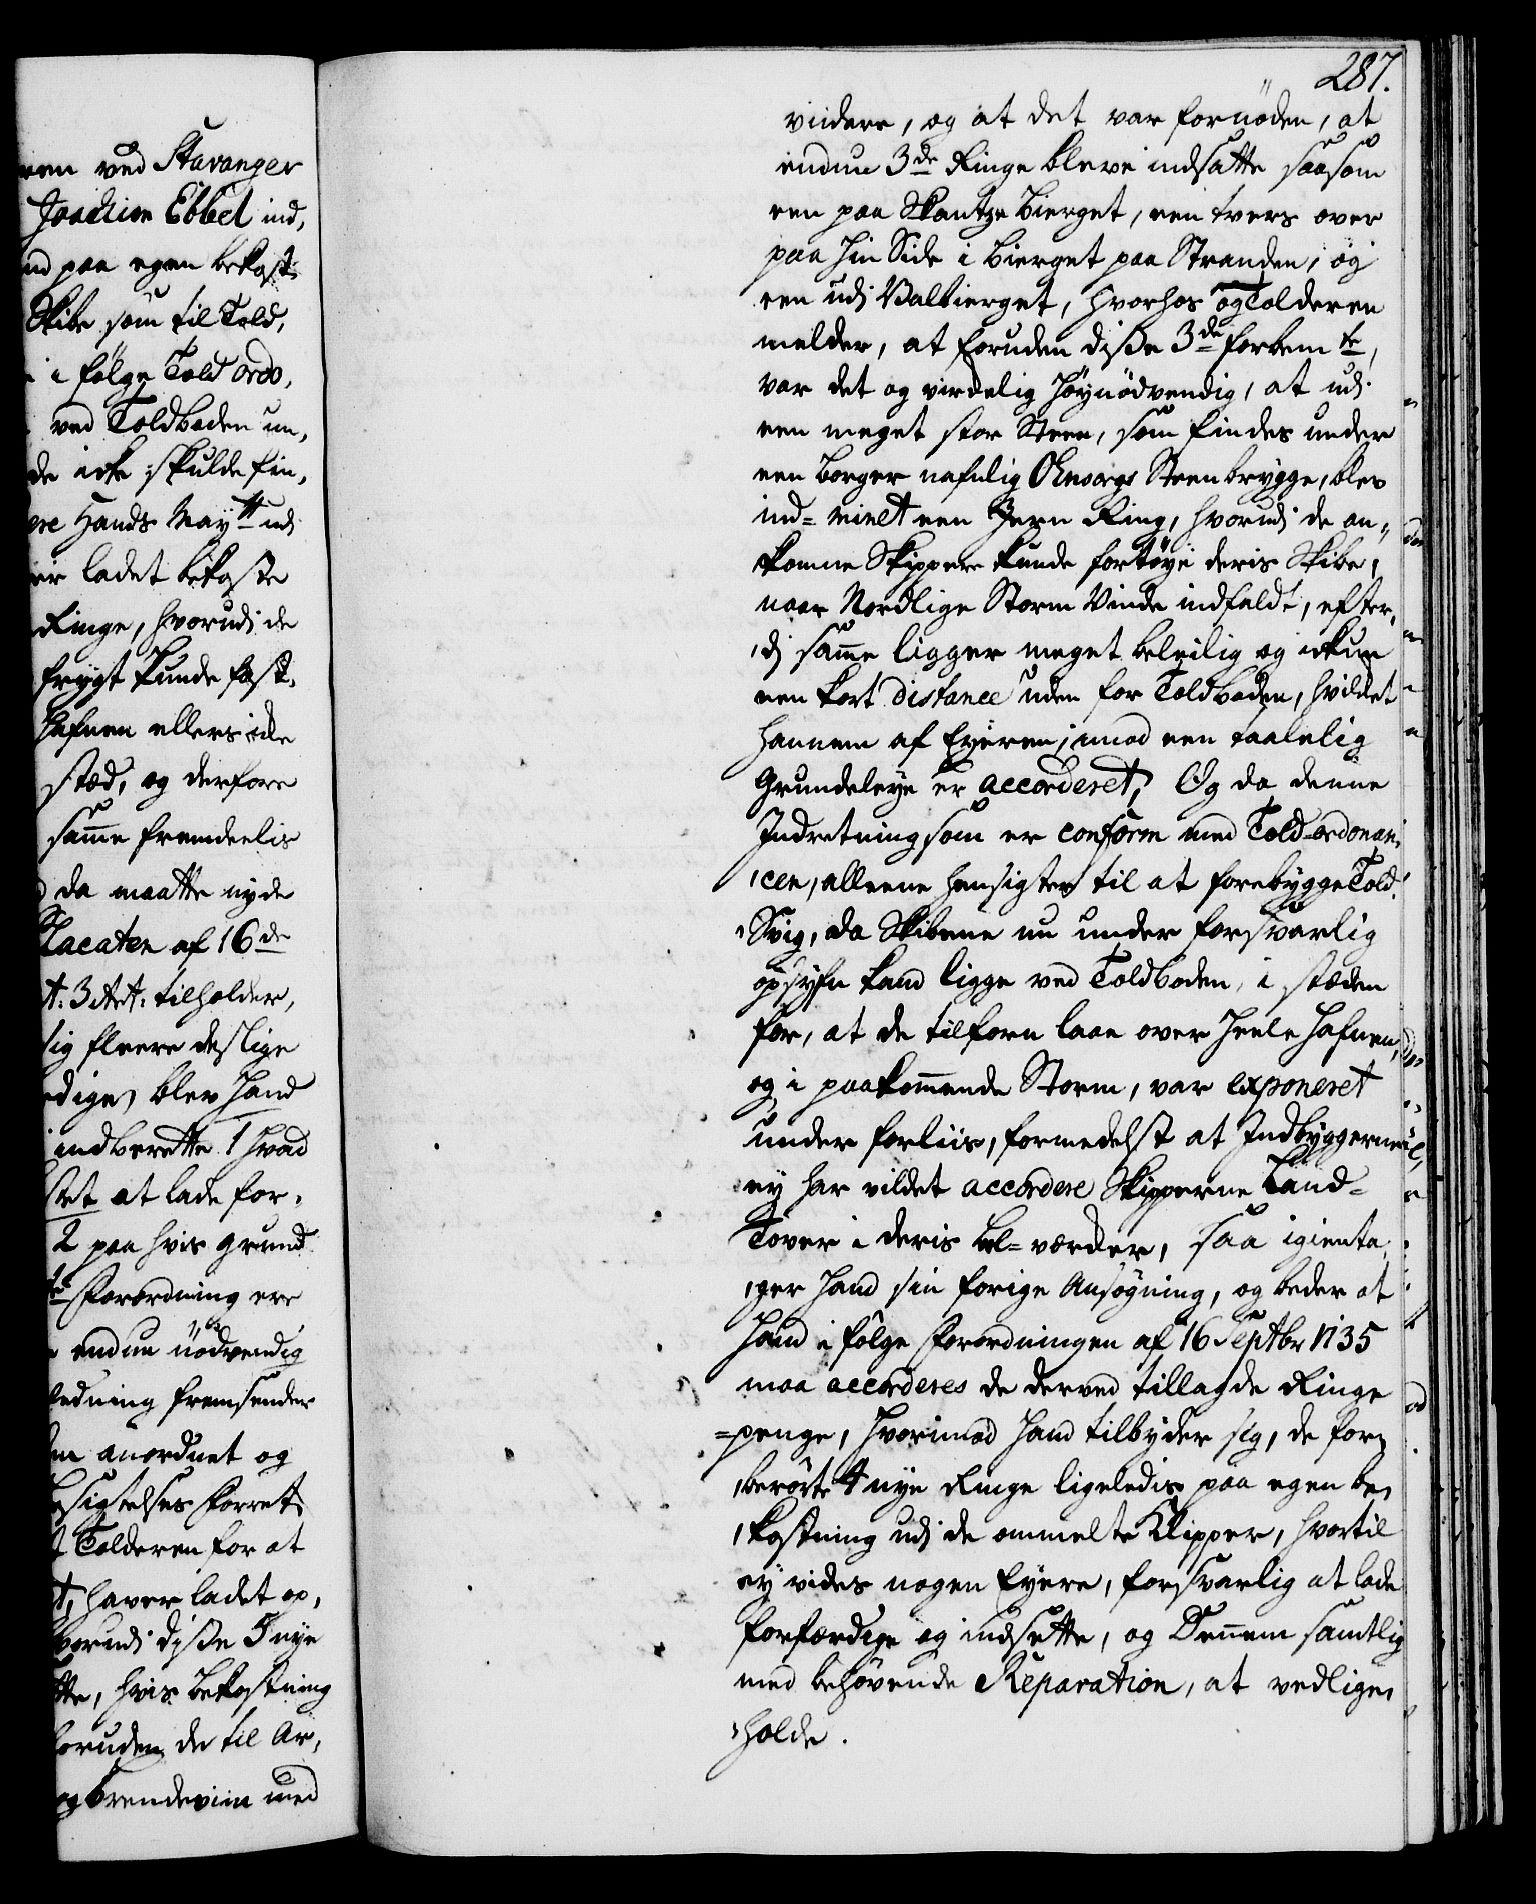 ven ved Stavanger
Joachim Ebbel ind,
nd paa egen bekost,
Skibe som til Told,
i følge Told ordo,
ved Toldboden un,
de icke skulde fin,
ere Hands Maytt udi
er ladet bekoste
Ringe, hvorudi de
frygt kunde fast,
Hafnen ellers icke
sted, og derfore
samme fremdeelis
da maatte nyde
Placaten af 16de
t: 3 Art: tilholder,
sig fleere deslige
dige, blev Hand
indberette 1 hvad
stet at lade for,
2 paa hvis grund
te Forordning ere
endnu nødvendig
ledning fremsender
anordnet og
sigtelses Forret,
Tolderen for at
t, haver ladet op,
hvorudi disse 5 nye
tte, hvis bekostning
foruden de til Ar,
og brendeviin med
287.
viidere, og at det var fornøden, at
endnu 3de Ringe bleve indsatte saasom
een paa Skantze Bierget, een tvers over
paa hin Side i Bierget paa Stranden, og
een udi Valbierget, hvorhos og Tolderen
melder, at foruden disse 3de forbemte,
var det og virkelig høynødvendig, at udi
een meget stor Steen, som findes under
een borger nafnlig Steenbrygge, blev
ind-minet een Jern Ring, hvorudi de an,
komne Skippere kunde fortøye deris Skibe,
naar Nordlige Storm Vinde indfaldt, efter,
,di samme ligger meget beleilig og ickun
een kort distance uden for Toldboden, hvilket
hannem af Eyeren, imod een taalelig
Grundeleye er accorderet, Og da denne
Indretning som er conform med Told-ordonan,
,cen, alleene hensigter til at forebygge Told,
,Svig, da Skibene nu under forsvarlig
opsyfn kand ligge ved Toldboden, i stæden
for, at de tilforn laae over heele Hafnen,
og i paakommende Storm, var exponeret
under forliis, formedelst at Indbyggerne
ey har vildet accordere Skipperne Land-
Tover i deris bol-værcker, saa igienta,
,ger Hand sin forige Ansøgning, og beder at
Hand i følge Forordningen af 16 Septbr 1735
maa accorderes de derved tillagde Ringe
=penge, hvorimod Hand tilbyder sig, de for,
,berørte 4 nye Ringe ligeledis paa egen be,
,kostning udi de ommelte Klipper, hvortil
ey vides nogen Eyere, forsvarlig at lade
forfærdige og indsette, og Dennem samtlig
med behøvende Reparation, at vedlige,
,holde.